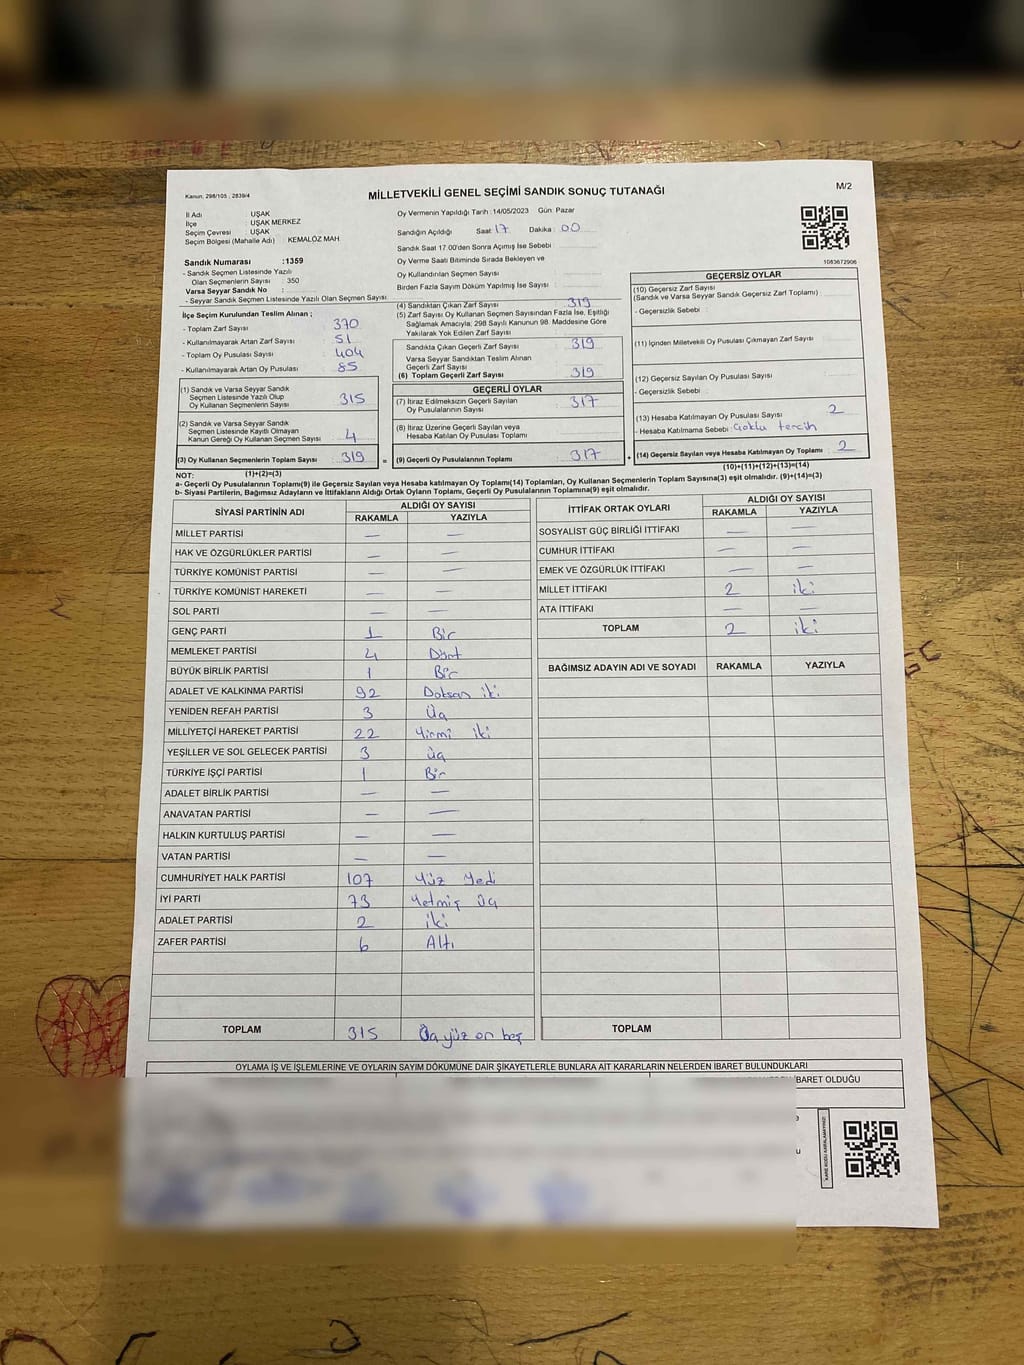 Kanun: 298/105 , 2839/4
MİLLETVEKİLİ GENEL SEÇİMİ SANDIK SONUÇ TUTANAĞI
M/2
İl Adı : UŞAK
İlçe : UŞAK MERKEZ
Seçim Çevresi : UŞAK
Seçim Bölgesi (Mahalle Adı) : KEMALÖZ MAH.
Oy Vermenin Yapıldığı Tarih : 14/05/2023 Gün: Pazar
Sandığın Açıldığı Saat : 17 Dakika : 00
Sandık Saat 17.00'den Sonra Açılmış İse Sebebi :
Oy Verme Saati Bitiminde Sırada Bekleyen ve
Oy Kullandırılan Seçmen Sayısı :
Birden Fazla Sayım Döküm Yapılmış İse Sayısı :
1083672906
Sandık Numarası : 1359
- Sandık Seçmen Listesinde Yazılı
Olan Seçmenlerin Sayısı : 350
Varsa Seyyar Sandık No :
- Seyyar Sandık Seçmen Listesinde Yazılı Olan Seçmen Sayısı:
İlçe Seçim Kurulundan Teslim Alınan ;
- Toplam Zarf Sayısı : 370
- Kullanılmayarak Artan Zarf Sayısı : 51
- Toplam Oy Pusulası Sayısı : 404
- Kullanılmayarak Artan Oy Pusulası : 85
(1) Sandık ve Varsa Seyyar Sandık
Seçmen Listesinde Yazılı Olup
Oy Kullanan Seçmenlerin Sayısı : 315
(2) Sandık ve Varsa Seyyar Sandık
Seçmen Listesinde Kayıtlı Olmayan
Kanun Gereği Oy Kullanan Seçmen Sayısı : 4
(3) Oy Kullanan Seçmenlerin Toplam Sayısı : 319
(1)+(2)=(3)
(4) Sandıktan Çıkan Zarf Sayısı : 319
(5) Zarf Sayısı Oy Kullanan Seçmen Sayısından Fazla İse, Eşitliği
Sağlamak Amacıyla; 298 Sayılı Kanunun 98. Maddesine Göre
Yakılarak Yok Edilen Zarf Sayısı :
Sandıkta Çıkan Geçerli Zarf Sayısı : 319
Varsa Seyyar Sandıktan Teslim Alınan
Geçerli Zarf Sayısı :
(6) Toplam Geçerli Zarf Sayısı : 319
GEÇERLİ OYLAR
(7) İtiraz Edilmeksizin Geçerli Sayılan
Oy Pusulalarının Sayısı : 317
(8) İtiraz Üzerine Geçerli Sayılan veya
Hesaba Katılan Oy Pusulası Toplamı :
= (9) Geçerli Oy Pusulalarının Toplamı : 317 +
GEÇERSİZ OYLAR
(10) Geçersiz Zarf Sayısı
(Sandık ve Varsa Seyyar Sandık Geçersiz Zarf Toplamı) :
- Geçersizlik Sebebi :
(11) İçinden Milletvekili Oy Pusulası Çıkmayan Zarf Sayısı :
(12) Geçersiz Sayılan Oy Pusulası Sayısı :
- Geçersizlik Sebebi :
(13) Hesaba Katılmayan Oy Pusulası Sayısı : 2
- Hesaba Katılmama Sebebi : Çoklu tercih
(14) Geçersiz Sayılan veya Hesaba Katılmayan Oy Toplamı : 2
(10)+(11)+(12)+(13)=(14)
NOT:
a- Geçerli Oy Pusulalarının Toplamı(9) ile Geçersiz Sayılan veya Hesaba Katılmayan Oy Toplamı(14) Toplamları, Oy Kullanan Seçmenlerin Toplam Sayısına(3) eşit olmalıdır. (9)+(14)=(3)
b- Siyasi Partilerin, Bağımsız Adayların ve İttifakların Aldığı Ortak Oyların Toplamı, Geçerli Oy Pusulalarının Toplamına(9) eşit olmalıdır.
SİYASİ PARTİNİN ADI ALDIĞI OY SAYISI
RAKAMLA YAZIYLA
MİLLET PARTİSİ — —
HAK VE ÖZGÜRLÜKLER PARTİSİ — —
TÜRKİYE KOMÜNİST PARTİSİ — —
TÜRKİYE KOMÜNİST HAREKETİ — —
SOL PARTİ — —
GENÇ PARTİ 1 Bir
MEMLEKET PARTİSİ 4 Dört
BÜYÜK BİRLİK PARTİSİ 1 Bir
ADALET VE KALKINMA PARTİSİ 92 Doksan iki
YENİDEN REFAH PARTİSİ 3 Üç
MİLLİYETÇİ HAREKET PARTİSİ 22 Yirmi iki
YEŞİLLER VE SOL GELECEK PARTİSİ 3 üç
TÜRKİYE İŞÇİ PARTİSİ 1 Bir
ADALET BİRLİK PARTİSİ — —
ANAVATAN PARTİSİ — —
HALKIN KURTULUŞ PARTİSİ — —
VATAN PARTİSİ — —
CUMHURİYET HALK PARTİSİ 107 Yüz Yedi
İYİ PARTİ 73 Yetmiş Üç
ADALET PARTİSİ 2 iki
ZAFER PARTİSİ 6 Altı
TOPLAM 315 Üç yüz on beş
İTTİFAK ORTAK OYLARI ALDIĞI OY SAYISI
RAKAMLA YAZIYLA
SOSYALİST GÜÇ BİRLİĞİ İTTİFAKI — —
CUMHUR İTTİFAKI — —
EMEK VE ÖZGÜRLÜK İTTİFAKI — —
MİLLET İTTİFAKI 2 iki
ATA İTTİFAKI — —
TOPLAM 2 iki
BAĞIMSIZ ADAYIN ADI VE SOYADI RAKAMLA YAZIYLA
TOPLAM
OYLAMA İŞ VE İŞLEMLERİNE VE OYLARIN SAYIM DÖKÜMÜNE DAİR ŞİKAYETLERLE BUNLARA AİT KARARLARIN NELERDEN İBARET BULUNDUKLARI
İBARET OLDUĞU